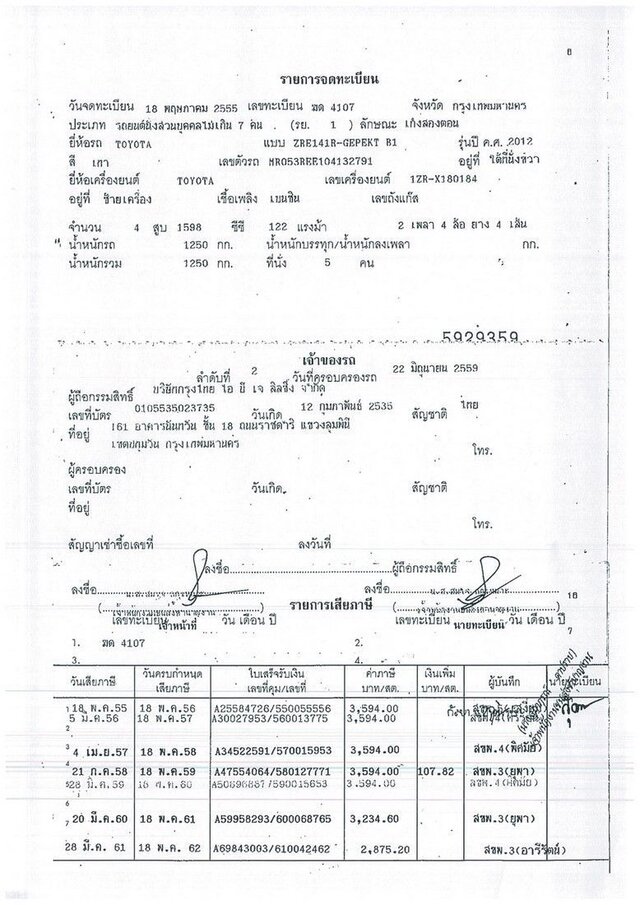 8
รายการจดทะเบียน
วันจดทะเบียน 18 พฤษภาคม 2555 เลขทะเบียน ฆด 4107 จังหวัด กรุงเทพมหานคร
ประเภท รถยนต์นั่งส่วนบุคคลไม่เกิน 7 คน (รย. 1 ) ลักษณะ เก๋งสองตอน
ยี่ห้อรถ TOYOTA แบบ ZRE141R-GEPEKT B1 รุ่นปี ค.ศ. 2012
สี เทา เลขตัวรถ MR053REE104132791 อยู่ที่ ใต้ที่นั่งขวา
ยี่ห้อเครื่องยนต์ TOYOTA เลขเครื่องยนต์ 1ZR-X180184
อยู่ที่ ซ้ายเครื่อง เชื้อเพลิง เบนซิน เลขถังแก๊ส
จำนวน 4 สูบ 1598 ซีซี 122 แรงม้า 2 เพลา 4 ล้อ ยาง 4 เส้น
น้ำหนักรถ 1250 กก. น้ำหนักบรรทุก/น้ำหนักลงเพลา กก.
น้ำหนักรวม 1250 กก. ที่นั่ง 5 คน
5929359
เจ้าของรถ
ลำดับที่ 2 วันที่ครอบครองรถ 22 มิถุนายน 2559
ผู้ถือกรรมสิทธิ์ บริษัทกรุงไทย ไอ บี เจ ลิสซิ่ง จำกัด
เลขที่บัตร 0105535023735 วันเกิด 12 กุมภาพันธ์ 2535 สัญชาติ ไทย
ที่อยู่ 161 อาคารนันทวัน ชั้น 18 ถนนราชดำริ แขวงลุมพินี
เขตปทุมวัน กรุงเทพมหานคร
โทร.
ผู้ครอบครอง
เลขที่บัตร วันเกิด สัญชาติ
ที่อยู่
โทร.
สัญญาเช่าซื้อเลขที่ ลงวันที่
ลงชื่อ ผู้ถือกรรมสิทธิ์
ลงชื่อ ลงชื่อ 18
รายการเสียภาษี
เลขทะเบียน เจ้าหน้าที่ วัน เดือน ปี เลขทะเบียน นายทะเบียน วัน เดือน ปี
1. ฆด 4107 2.
3. 4.
วันเสียภาษี วันครบกำหนดเสียภาษี ใบเสร็จรับเงิน เล่มที่คุม/เลขที่ ค่าภาษี บาท/สต. เงินเพิ่ม บาท/สต. ผู้บันทึก นายทะเบียน
1 18 พ.ค.55 18 พ.ค.56 A25584726/550055556 3,594.00
5 มี.ค.56 18 พ.ค.57 A30027953/560013775 3,594.00
2
3 4 เม.ย.57 18 พ.ค.58 A34522591/570015953 3,594.00 สขพ.4(พิศมัย)
4 21 ก.ค.58 18 พ.ค.59 A47554064/580127771 3,594.00 107.82 สขพ.3(ยุพา)
5 28 มี.ค.59 18 พ.ค.60 A50896887/590015653 3,594.00 สขพ.4(พิศมัย)
6
7 20 มี.ค.60 18 พ.ค.61 A59958293/600068765 3,234.60 สขพ.3(ยุพา)
28 มี.ค. 61 18 พ.ค. 62 A69843003/610042462 2,875.20 สขพ.3(อารีรัตน์)
8